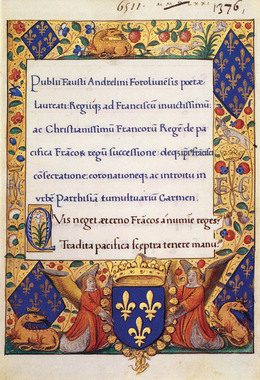 6511.
1376,
Publii Fausti Andrelini Foroliuiẽsis poetæ
laureati: Regiiqɜ ad Franciscũ inuictissimũ
ac Christianissimũ Francorũ Regẽ de pa
cifica Frãcoɤ regũ successione: deqɜ ipsi Francisci
cõsecratione: coronationeqɜ: ac introitu in
vrbẽ Parrhisiã tumultuariũ Carmen.
QVis neget æterno Frãcos a numine reges?
Tradita pacifica sceptra tenere manu?